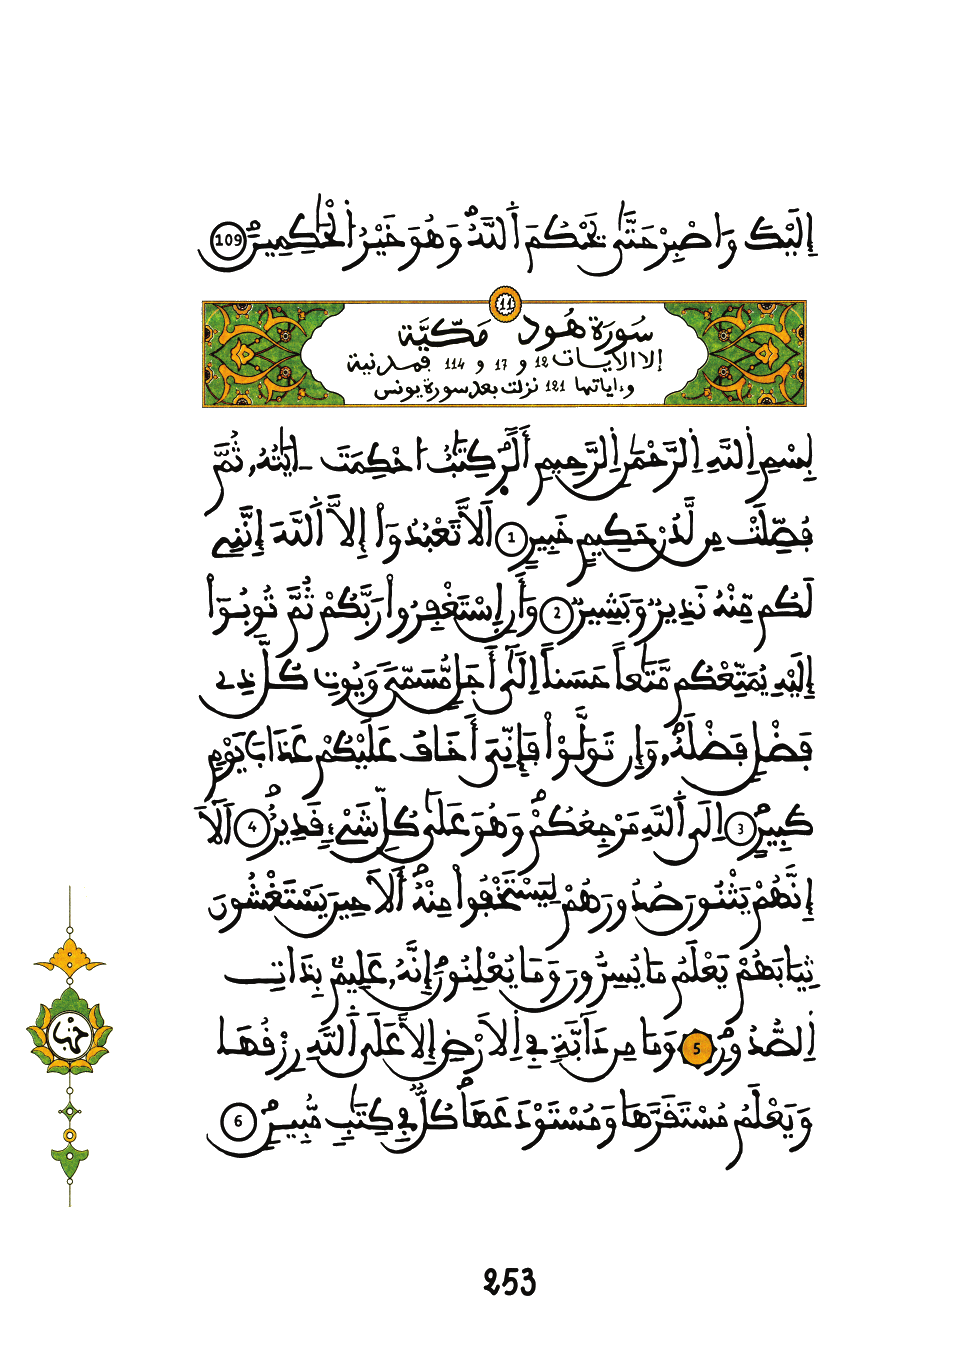 إِلَيْكَ وَاصْبِرْ حَتَّىٰ يَحْكُمَ اَ۬للَّهُ وَهُوَ خَيْرُ اُ۬لْحَٰكِمِينَۖ 109
11
سُورَة هُود مَكِّيَّة
إلا الآيات 12 و 17 و 114 فمدنية
وءاياتها 121 نزلت بعد سورة يونس
بِسْمِ اِ۬للَّهِ اِ۬لرَّحْمَٰنِ اِ۬لرَّحِيمِ أَلَٓر۪ۖ كِتَٰبٌ ا۟حْكِمَتَ اٰيَٰتُهُۥ ثُمَّ
فُصِّلَتْ مِن لَّدُنْ حَكِيمٍ خَبِيرٍ 1 اَلَّا تَعْبُدُوٓاْ إِلَّا اَ۬للَّهَ إِنَّنِے
لَكُم مِّنْهُ نَذِيرٞ وَبَشِيرٞ 2 وَأَنِ اِ۪سْتَغْفِرُواْ رَبَّكُمْ ثُمَّ تُوبُوٓاْ
إِلَيْهِ يُمَتِّعْكُم مَّتَٰعاً حَسَناً اِلَىٰٓ أَجَلٖ مُّسَمّيٗ وَيُوتِ كُلَّ ذِے
فَضْلٖ فَضْلَهُۥۖ وَإِن تَوَلَّوْاْ فَإِنِّيَ أَخَافُ عَلَيْكُمْ عَذَابَ يَوْمٖ
كَبِيرٍۖ 3 اِلَى اَ۬للَّهِ مَرْجِعُكُمْۖ وَهُوَ عَلَىٰ كُلِّ شَےْءٖ قَدِيرٌۖ 4 اَلَآ
إِنَّهُمْ يَثْنُونَ صُدُورَهُمْ لِيَسْتَخْفُواْ مِنْهُۖ أَلَا حِينَ يَسْتَغْشُونَ
ثِيَابَهُمْ يَعْلَمُ مَا يُسِرُّونَ وَمَا يُعْلِنُونَۖ إِنَّهُۥ عَلِيمُۢ بِذَاتِ
اِ۬لصُّدُورِۖ 5 وَمَا مِن دَآبَّةٖ فِے اِ۬لَارْضِ إِلَّا عَلَى اَ۬للَّهِ رِزْقُهَا
وَيَعْلَمُ مُسْتَقَرَّهَا وَمُسْتَوْدَعَهَاۖ كُلّٞ فِے كِتَٰبٖ مُّبِينٖۖ 6
حزب
253